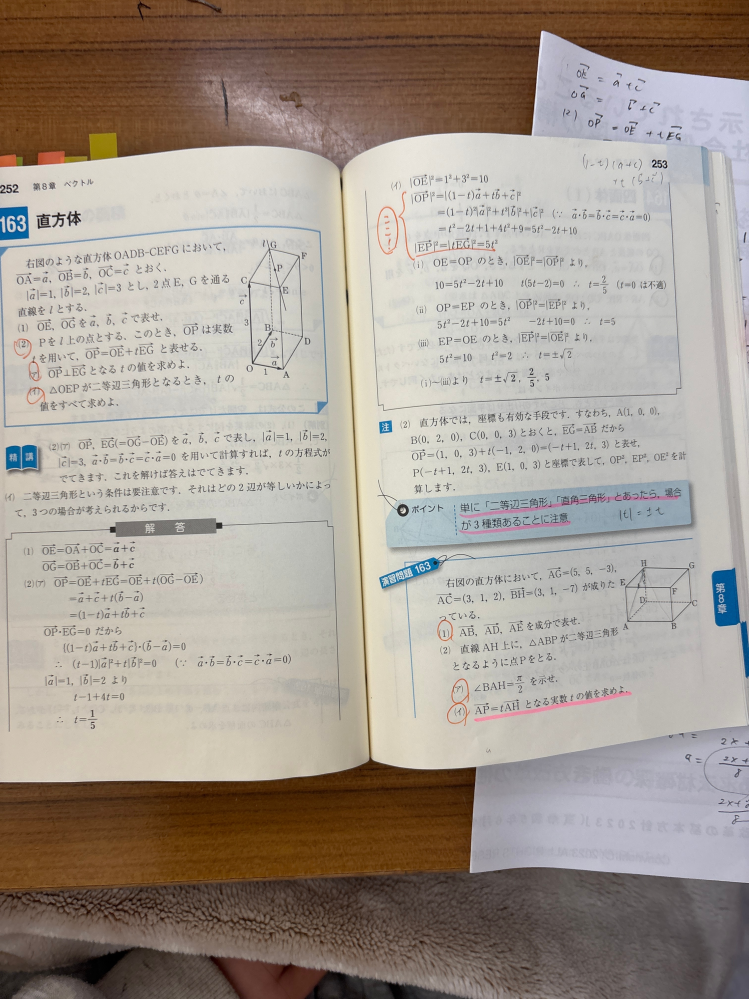 252 第8章 ベクトル
163 直方体
右図のような直方体 OADB-CEFG において,
OA→=a→, OB→=b→, OC→=c→ とおく.
|a→|=1, |b→|=2, |c→|=3 とし, 2点E, Gを通る
直線を l とする.
(1) OE→, OG→ を a→, b→, c→ で表せ.
(2) P を l 上の点とする. このとき, OP→ は実数
t を用いて, OP→=OE→+tEG→ と表せる.
(ア) OP→⊥EG→ となる t の値を求めよ.
(イ) △OEP が二等辺三角形となるとき, t の
値をすべて求めよ.
l G F P C E c→ 3 B D 2 b→ a→ O 1 A
精講
(2)(ア) OP→, EG→(=OG→−OE→) を a→, b→, c→ で表し, |a→|=1, |b→|=2,
|c→|=3, a→·b→=b→·c→=c→·a→=0 を用いて計算すれば, t の方程式が
でてきます. これを解けば答えはでてきます.
(イ) 二等辺三角形という条件は要注意です. それはどの2辺が等しいかによっ
て, 3つの場合が考えられるからです.
解答
(1) OE→=OA→+OC→=a→+c→
OG→=OB→+OC→=b→+c→
(2)(ア) OP→=OE→+tEG→=OE→+t(OG→−OE→)
=a→+c→+t(b→−a→)
=(1−t)a→+tb→+c→
OP→·EG→=0 だから
{(1−t)a→+tb→+c→}·(b→−a→)=0
∴ (t−1)|a→|²+t|b→|²=0 (∵ a→·b→=b→·c→=c→·a→=0)
|a→|=1, |b→|=2 より
t−1+4t=0
∴ t=1/5
253
(イ) |OE→|²=1²+3²=10
|OP→|²=|(1−t)a→+tb→+c→|²
=(1−t)²|a→|²+t²|b→|²+|c→|² (∵ a→·b→=b→·c→=c→·a→=0)
=t²−2t+1+4t²+9=5t²−2t+10
|EP→|²=|tEG→|²=5t²
(i) OE=OP のとき, |OE→|²=|OP→|² より,
10=5t²−2t+10 t(5t−2)=0 ∴ t=2/5 (t=0 は不適)
(ii) OP=EP のとき, |OP→|²=|EP→|² より,
5t²−2t+10=5t² −2t+10=0 ∴ t=5
(iii) EP=OE のとき, |EP→|²=|OE→|² より,
5t²=10 t²=2 ∴ t=±√2
(i)〜(iii)より t=±√2, 2/5, 5
注 (2) 直方体では, 座標も有効な手段です. すなわち, A(1, 0, 0),
B(0, 2, 0), C(0, 0, 3) とおくと, EG→=AB→ だから
OP→=(1, 0, 3)+t(−1, 2, 0)=(−t+1, 2t, 3) と表せ,
P(−t+1, 2t, 3), E(1, 0, 3) と座標で表して, OP², EP², OE² を計
算します.
ポイント 単に「二等辺三角形」「直角三角形」とあったら, 場合
が3種類あることに注意
|t|=±t
演習問題 163
右図の直方体において, AG→=(5, 5, −3),
AC→=(3, 1, 2), BH→=(3, 1, −7) が成りた
っている.
(1) AB→, AD→, AE→ を成分で表せ.
(2) 直線 AH 上に, △ABP が二等辺三角形
となるように点Pをとる.
(ア) ∠BAH=π/2 を示せ.
(イ) AP→=tAH→ となる実数 t の値を求めよ.
H G E F D C A B
第8章
OE→ = a→+c→
OG→ = b→+c→
(2) OP→ = OE→ + tEG→